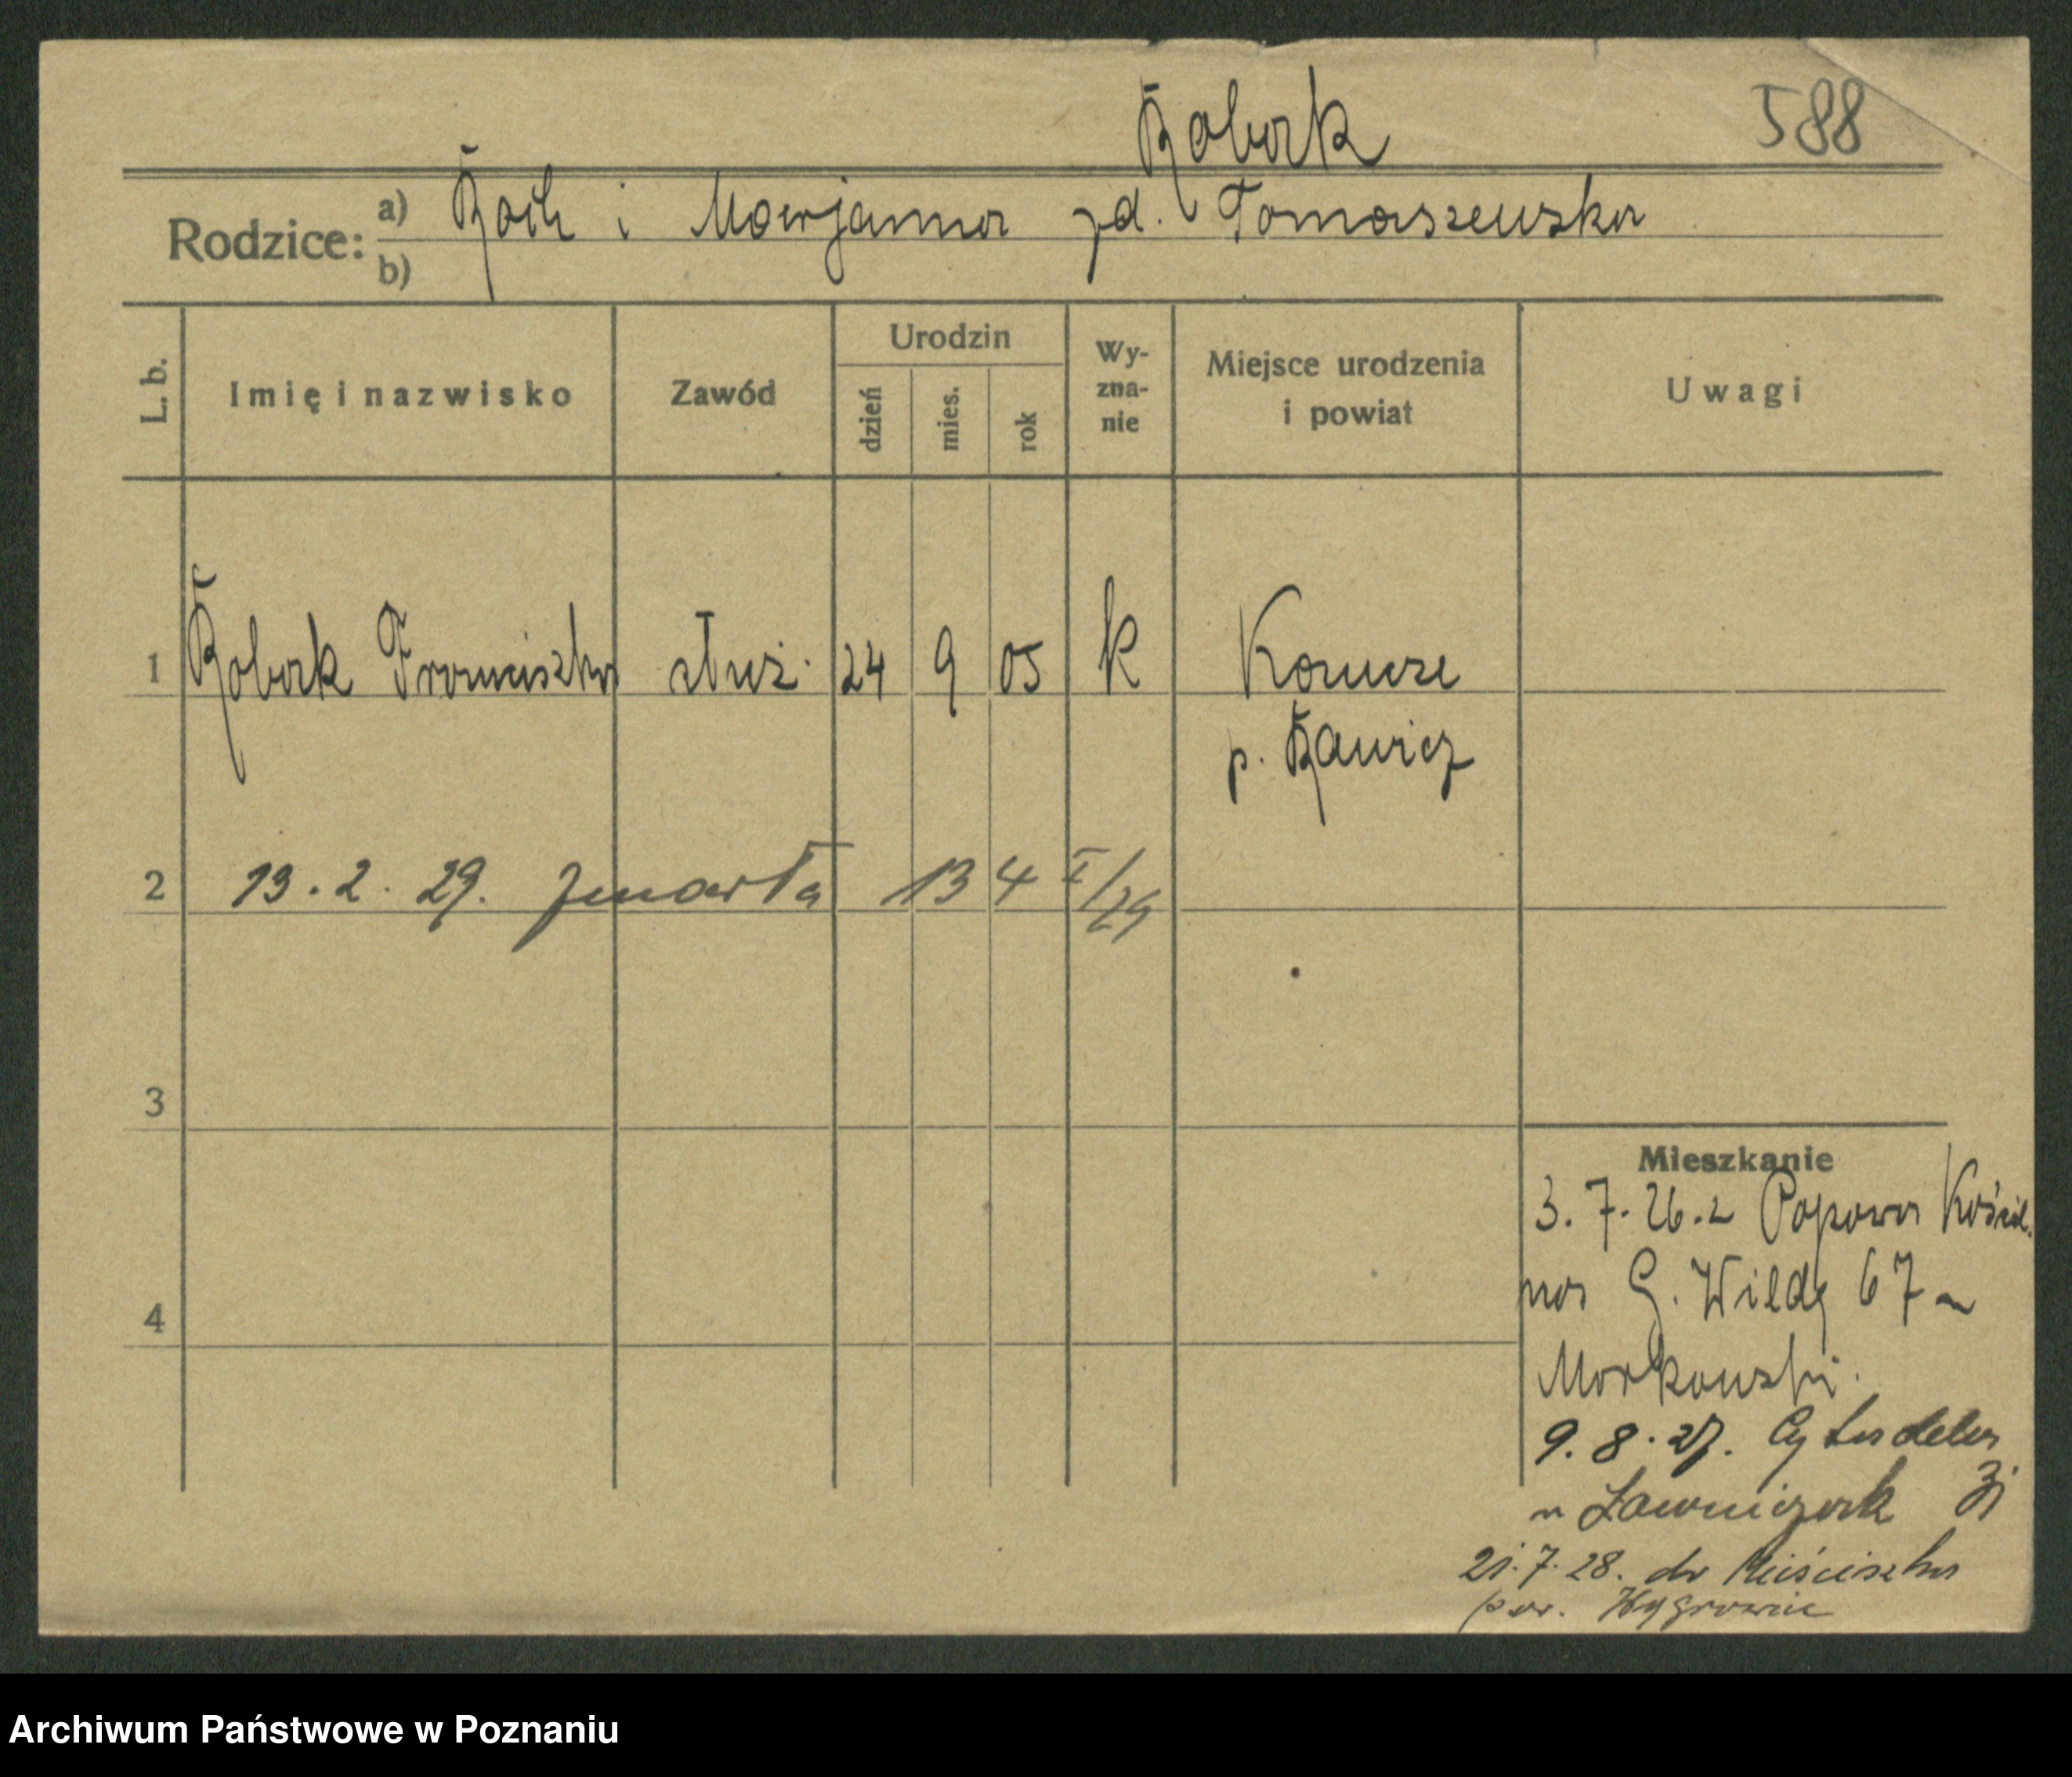 Robak
588
Rodzice: a) Roch i Marjanna zd. Tomaszewska
b)
L. b.
Imię i nazwisko
Zawód
Urodzin
dzień
mies.
rok
Wy-
zna-
nie
Miejsce urodzenia
i powiat
Uwagi
1 Robak Franciszka służ. 24 9 05 k
p. Rawicz
2 13. 2. 29. zmarła 134 I/29
3
4
Mieszkanie
3. 7. 26. z Popowa Kościel.
na G. Wildę 67 u
Markowski.
9. 8. 27. Cytadela
u Ławniczak
21. 7. 28. do Mieściska
pow. Wągrowiec
Archiwum Państwowe w Poznaniu